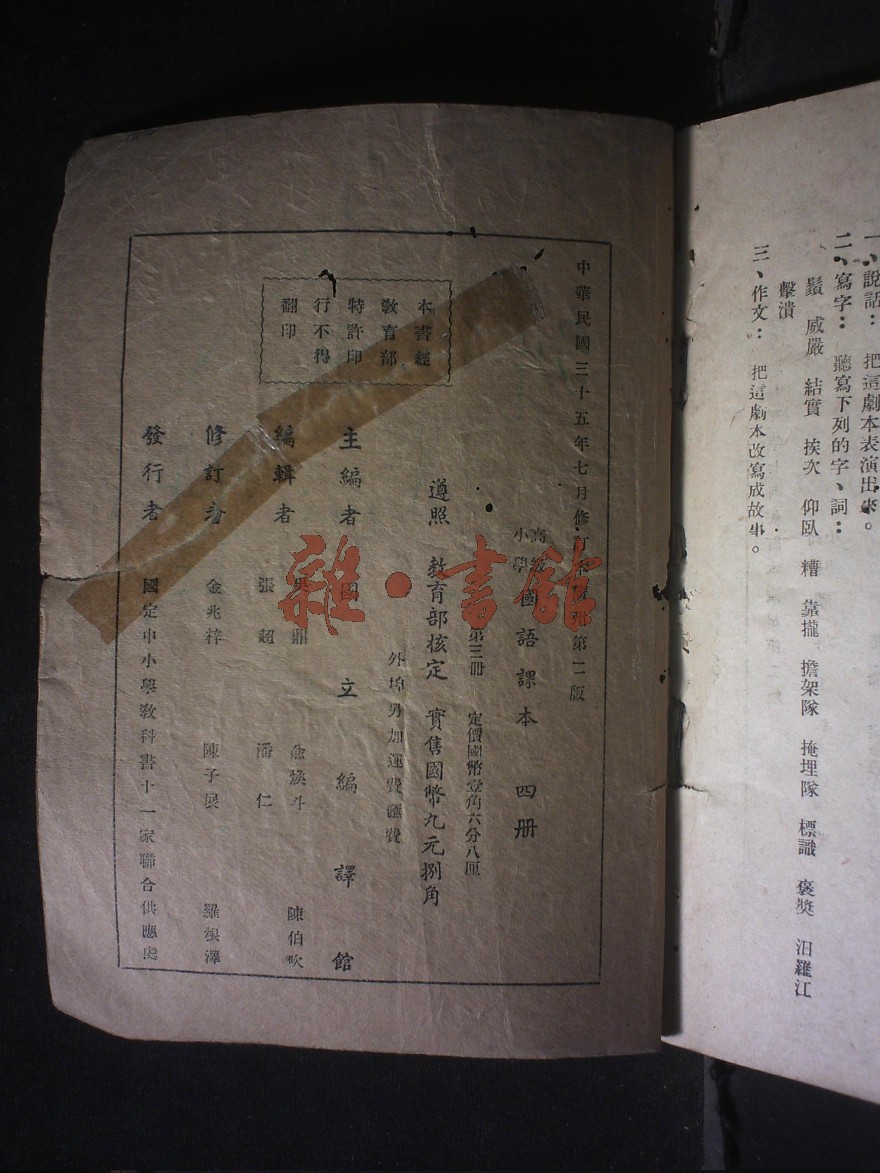 一、說話：　把這劇本表演出來。
二、寫字：　聽寫下列的字、詞：
鬚　威嚴　結實　挨次　仰臥　糟　靠攏　擔架隊　掩埋隊　標識　褒獎　汨羅江
擊潰
三、作文：　把這劇本改寫成故事。
中華民國三十五年七月修訂　第一版
高級小學　國語課本　四册
第三册　定價國幣壹角六分八厘
遵照　教育部核定　實售國幣九元捌角
外埠另加運費匯費
本書經
教育部
特許印
行不得
翻印
主編者　國立編譯館
編輯者　吳鼎　俞煥斗　陳伯吹
張超　潘仁
修訂者　金兆梓　陳子展　羅根澤
發行者　國定中小學教科書十一家聯合供應處
雜·書館